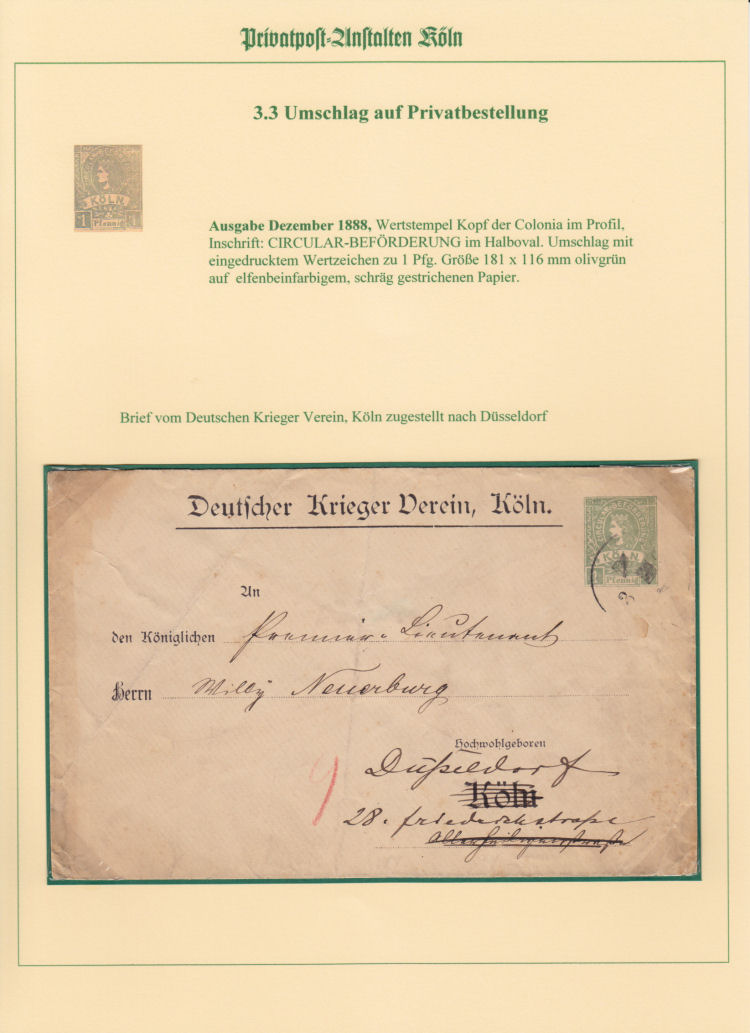 Privatpost-Anstalten Köln
3.3 Umschlag auf Privatbestellung
KÖLN
1 Pfennig 1
Ausgabe Dezember 1888, Wertstempel Kopf der Colonia im Profil,
Inschrift: CIRCULAR-BEFÖRDERUNG im Halboval. Umschlag mit
eingedrucktem Wertzeichen zu 1 Pfg. Größe 181 x 116 mm olivgrün
auf elfenbeinfarbigem, schräg gestrichenen Papier.
Brief vom Deutschen Krieger Verein, Köln zugestellt nach Düsseldorf
Deutscher Krieger Verein, Köln.
CIRCULAR-BEFÖRDERUNG
KÖLN
1 Pfennig
An
den Königlichen Premier-Lieutenant
Herrn Willy Neuerburg
Hochwohlgeboren
Düsseldorf
Köln
28. Friederichstraße
Allerheiligenstraße